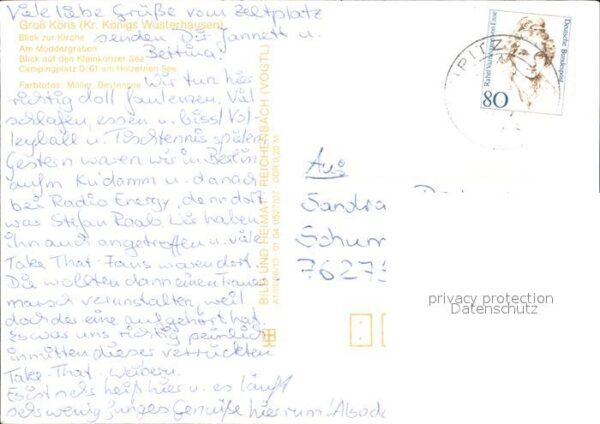 Viele liebe Grüße vom Zeltplatz
Groß Köris (Kr. Königs Wusterhausen)
senden Dir Jannett u.
Blick zur Kirche
Am Moddergraben
Bettina!
Blick auf den Kleinköriser See
Campingplatz D/61 am Hölzernen See
Wir tun hier
Farbfotos: Müller, Bestensee
richtig doll faulenzen. Viel
schlafen, essen u. bissl Vol-
leyball u. Tischtennis spielen.
Gestern waren wir in Berlin
aufm Ku'damm u. danach
bei Radio Energy, denn dort
war Stefan Raab. Wir haben
ihn auch angetroffen u. viele
Take That-Fans waren dort.
Die wollten dann einen Trauer-
marsch veranstalten, weil
doch der eine aufgehört hat.
Es war uns richtig peinlich
inmitten dieser verrückten
Take-That-Weibern.
Es ist sehr heiß hier u. es läuft
sehr wenig junges Gemüse hier rum! Also
BILD UND HEIMAT REICHENBACH (VOGTL)
Deutsche Bundespost
Rahel Varnhagen von Ense
80
An
Sandra
Schum
76275
privacy protection
Datenschutz